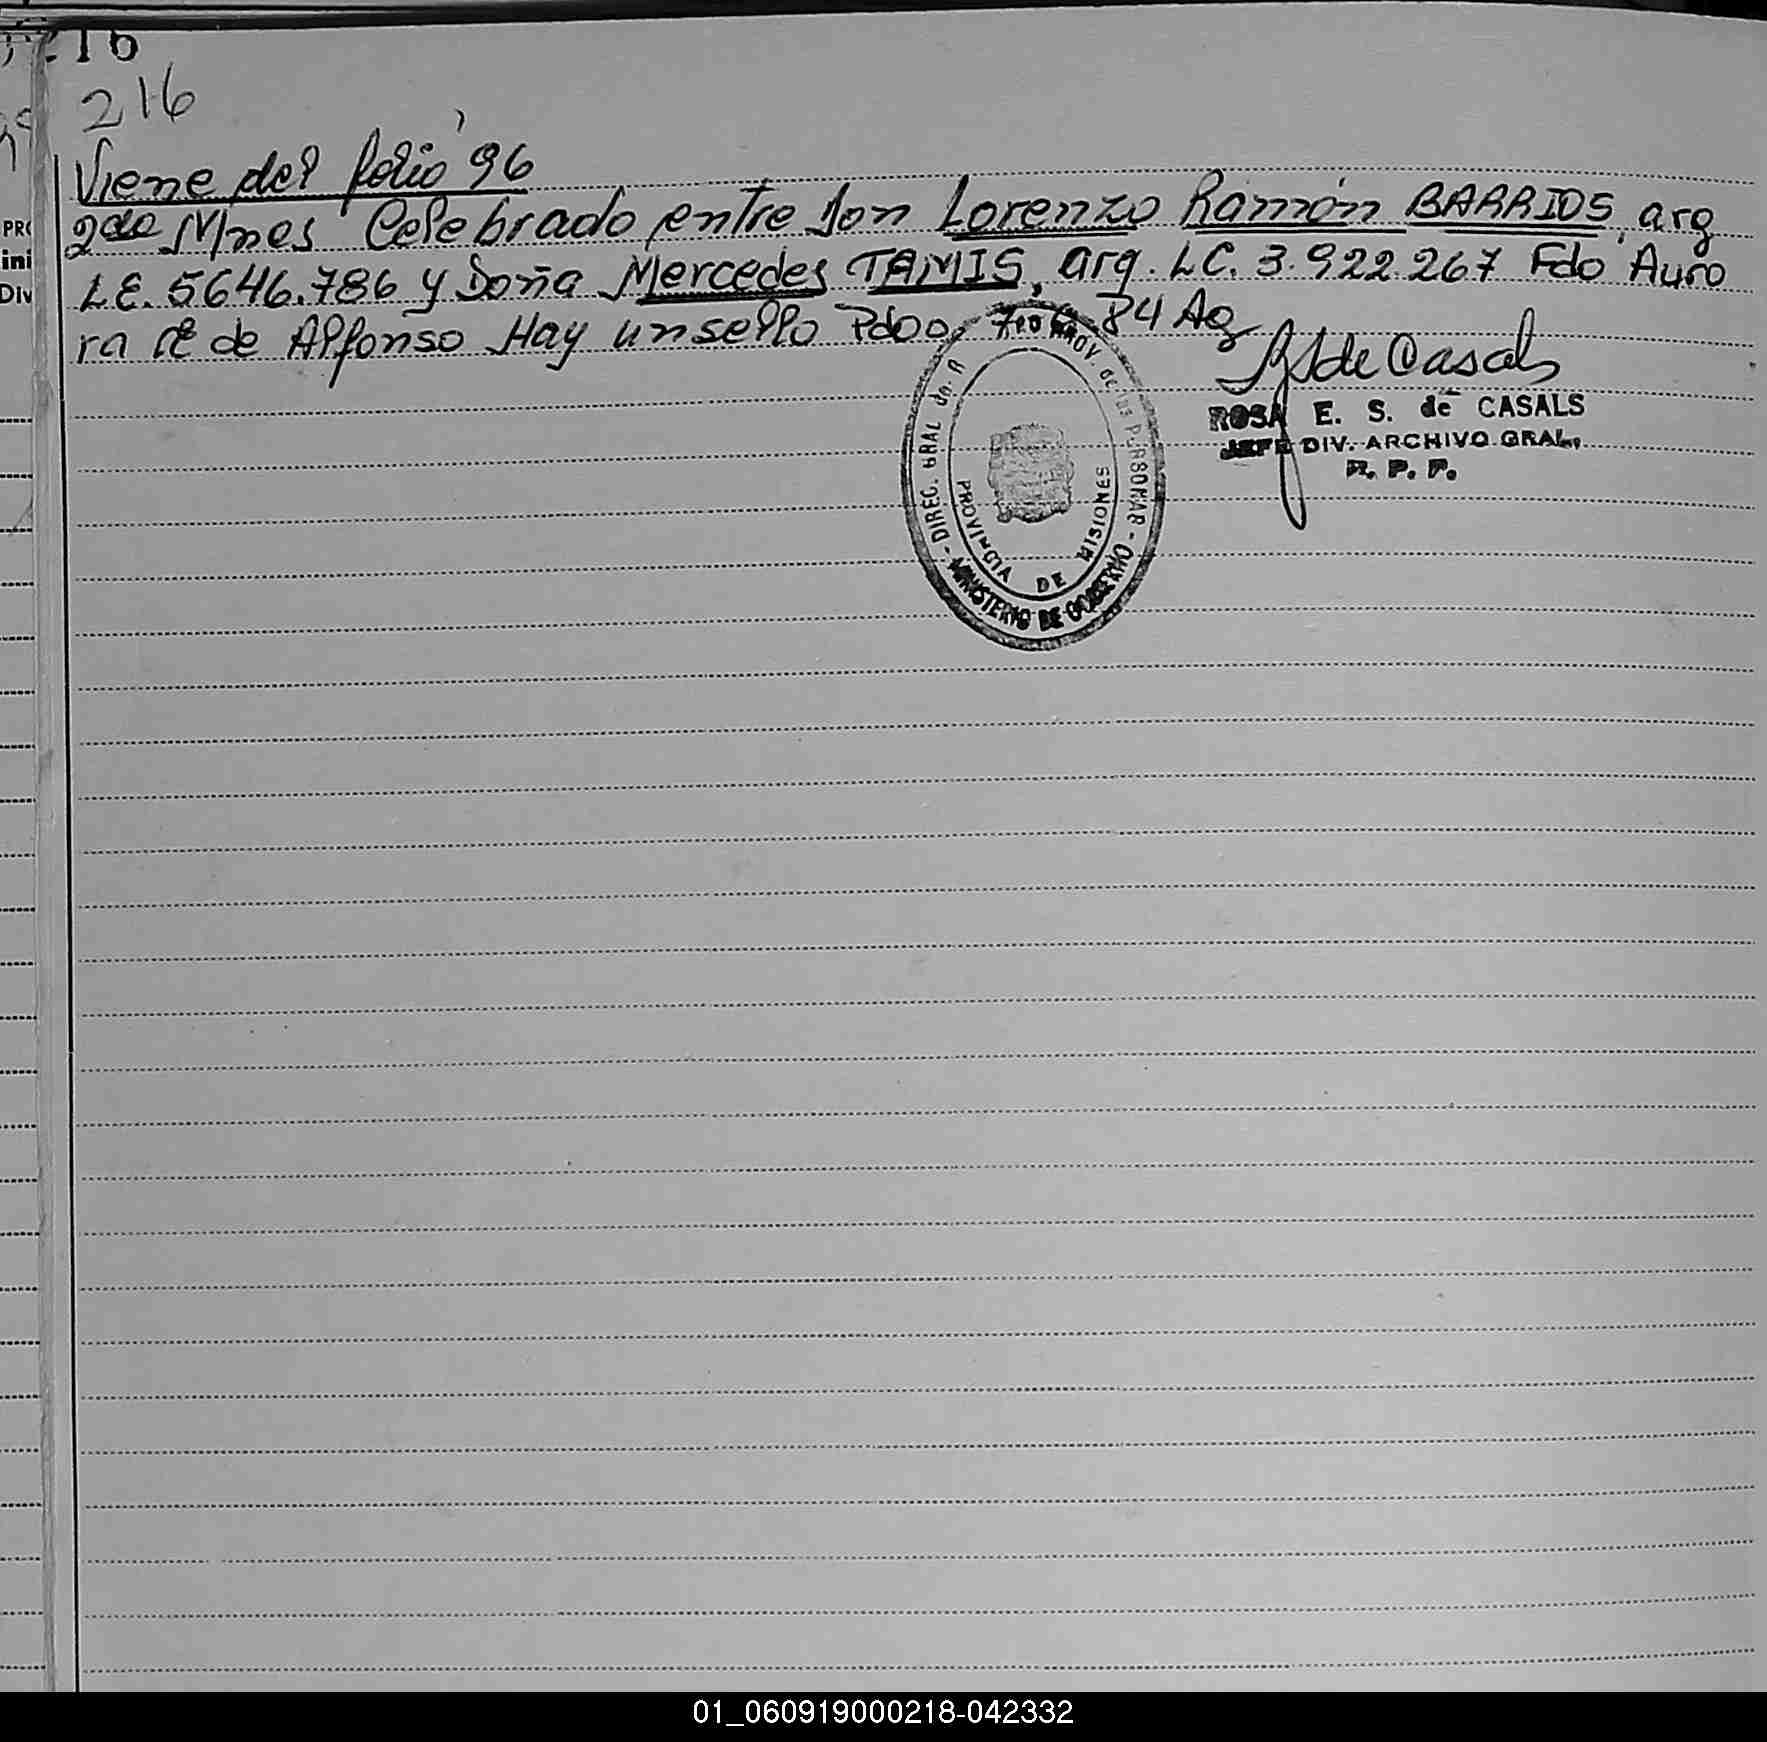 216
216
Viene del folio 96
2do Mnes Celebrado entre Don Lorenzo Ramón BARRIOS, arg
L.E. 5646.786 y Doña Mercedes TAMIS, arg. L.C. 3.922.267 Fdo Auro
ra de Alfonso Hay un sello Pdo 84
de Casals
ROSA E. S. de CASALS
JEFE DIV. ARCHIVO GRAL.
R. P. P.
DIREC. GRAL PROV. de las PERSONAS
PROVINCIA DE MISIONES
MINISTERIO DE GOBIERNO
PR
ini
Div
01_060919000218-042332